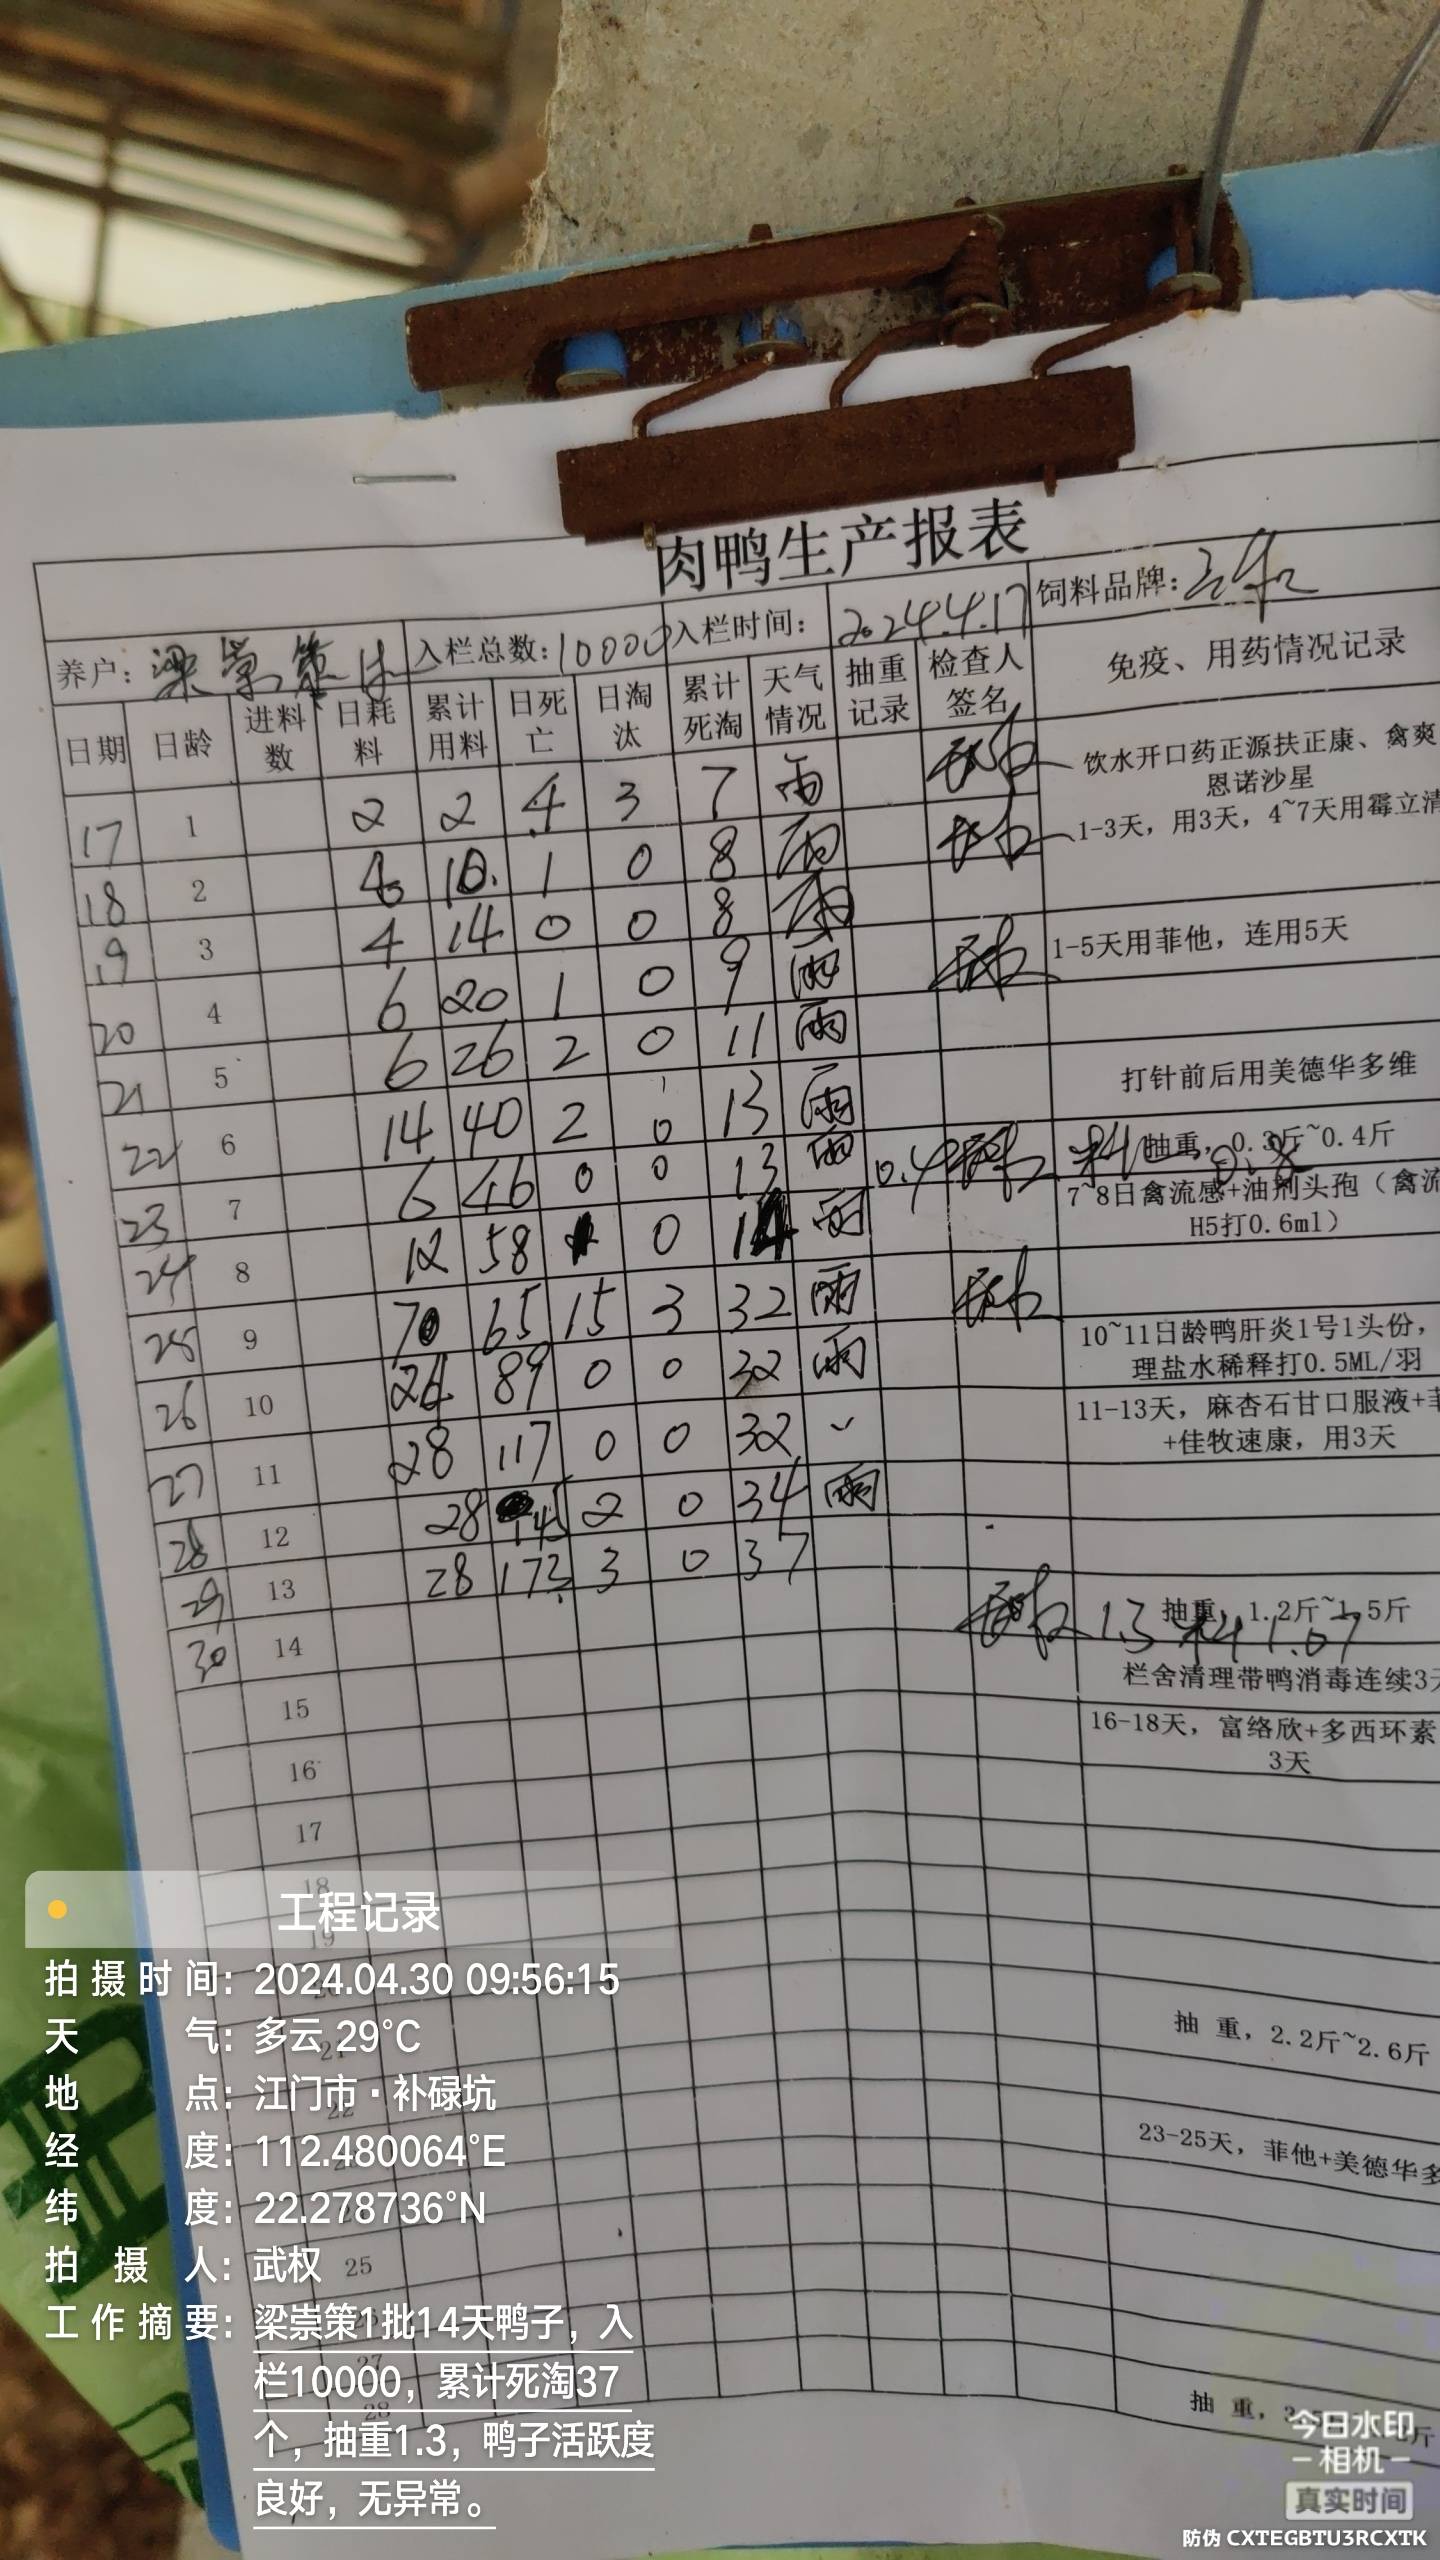 肉鸭生产报表
养户: 梁崇策 入栏总数: 10000 入栏时间: 2024.4.17 饲料品牌:
日期 日龄 进料数 日耗料 累计用料 日死亡 日淘汰 累计死淘 天气情况 抽重记录 检查人签名 免疫、用药情况记录
17 1 2 2 4 3 7 雨
饮水开口药正源扶正康、禽爽
恩诺沙星
18 2 10. 1 0 8 雨
1-3天，用3天，4~7天用霉立清
19 3 4 14 0 0 8 雨
20 4 6 20 1 0 9 雨
1-5天用菲他，连用5天
21 5 6 26 2 0 11 雨
22 6 14 40 2 0 13 雨
打针前后用美德华多维
23 7 6 46 0 0 13 雨 0.4
抽重，0.3斤~0.4斤
24 8 12 58 0 14 雨
7~8日禽流感+油剂头孢（禽流
H5打0.6ml）
25 9 7 65 15 3 32 雨
26 10 24 89 0 0 32 雨
10~11日龄鸭肝炎1号1头份，
理盐水稀释打0.5ML/羽
27 11 28 117 0 0 32
11-13天，麻杏石甘口服液+菲
+佳牧速康，用3天
28 12 28 145 2 0 34 雨
29 13 28 173 3 0 37
30 14
抽重，1.2斤~1.5斤
1.3 料 1.07
15
栏舍清理带鸭消毒连续3天
16
16-18天，富络欣+多西环素
3天
17
18
19
21
抽 重，2.2斤~2.6斤
22
23-25天，菲他+美德华多
25
27
28
抽 重，
工程记录
拍摄时间: 2024.04.30 09:56:15
天气: 多云 29°C
地点: 江门市·补碌坑
经度: 112.480064°E
纬度: 22.278736°N
拍摄人: 武权
工作摘要: 梁崇策1批14天鸭子，入
栏10000，累计死淘37
个，抽重1.3，鸭子活跃度
良好，无异常。
今日水印
-相机-
真实时间
防伪 CXTEGBTU3RCXTK